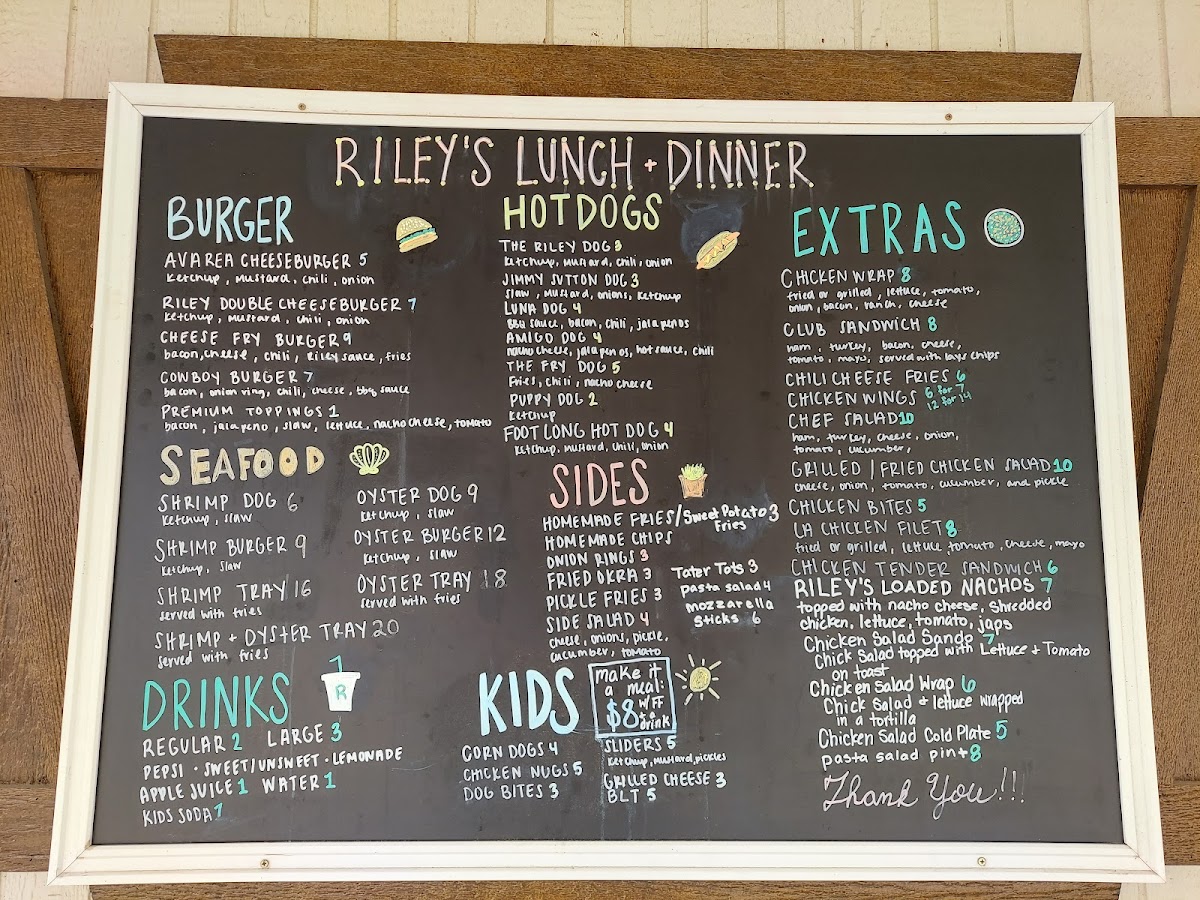 RILEY'S LUNCH + DINNER
BURGER
AVAREA CHEESEBURGER 5
ketchup, mustard, chili, onion
RILEY DOUBLE CHEESEBURGER 7
ketchup, mustard, chili, onion
CHEESE FRY BURGER 9
bacon, cheese, chili, Riley sauce, fries
COWBOY BURGER 7
bacon, onion ring, chili, cheese, bbq sauce
PREMIUM TOPPINGS 1
bacon, jalapeno, slaw, lettuce, nacho cheese, tomato
SEAFOOD
SHRIMP DOG 6
ketchup, slaw
SHRIMP BURGER 9
ketchup, slaw
SHRIMP TRAY 16
served with fries
SHRIMP + OYSTER TRAY 20
served with fries
OYSTER DOG 9
ketchup, slaw
OYSTER BURGER 12
ketchup, slaw
OYSTER TRAY 18
served with fries
DRINKS
R
REGULAR 2 LARGE 3
PEPSI · SWEET/UNSWEET · LEMONADE
APPLE JUICE 1 WATER 1
KIDS SODA 1
HOTDOGS
THE RILEY DOG 3
ketchup, mustard, chili, onion
JIMMY SUTTON DOG 3
slaw, mustard, onions, ketchup
LUNA DOG 4
BBQ sauce, bacon, chili, jalapenos
AMIGO DOG 4
nacho cheese, jalapenos, hot sauce, chili
THE FRY DOG 5
Fries, chili, nacho cheese
PUPPY DOG 2
ketchup
FOOT LONG HOT DOG 4
ketchup, mustard, chili, onion
SIDES
HOMEMADE FRIES/Sweet Potato 3
Fries
HOMEMADE CHIPS
ONION RINGS 3
FRIED OKRA 3
PICKLE FRIES 3
SIDE SALAD 4
cheese, onions, pickle,
cucumber, tomato
Tater Tots 3
pasta salad 4
mozzarella
sticks 6
KIDS
make it
a meal:
$8 w/FF
+ a
drink
CORN DOGS 4
CHICKEN NUGS 5
DOG BITES 3
SLIDERS 5
ketchup, mustard, pickles
GRILLED CHEESE 3
BLT 5
EXTRAS
CHICKEN WRAP 8
fried or grilled, lettuce, tomato,
onion, bacon, ranch, cheese
CLUB SANDWICH 8
ham, turkey, bacon, cheese,
tomato, mayo, served with lays chips
CHILI CHEESE FRIES 6
CHICKEN WINGS 6 for 7
12 for 14
CHEF SALAD 10
ham, turkey, cheese, onion,
tomato, cucumber,
GRILLED/FRIED CHICKEN SALAD 10
cheese, onion, tomato, cucumber, and pickle
CHICKEN BITES 5
LA CHICKEN FILET 8
fried or grilled, lettuce, tomato, cheese, mayo
CHICKEN TENDER SANDWICH 6
RILEY'S LOADED NACHOS 7
topped with nacho cheese, shredded
chicken, lettuce, tomato, japs
Chicken Salad Sando 7
Chick Salad topped with Lettuce + Tomato
on toast
Chicken Salad Wrap 6
Chick Salad + lettuce wrapped
in a tortilla
Chicken Salad Cold Plate 5
pasta salad pint 8
Thank You!!!